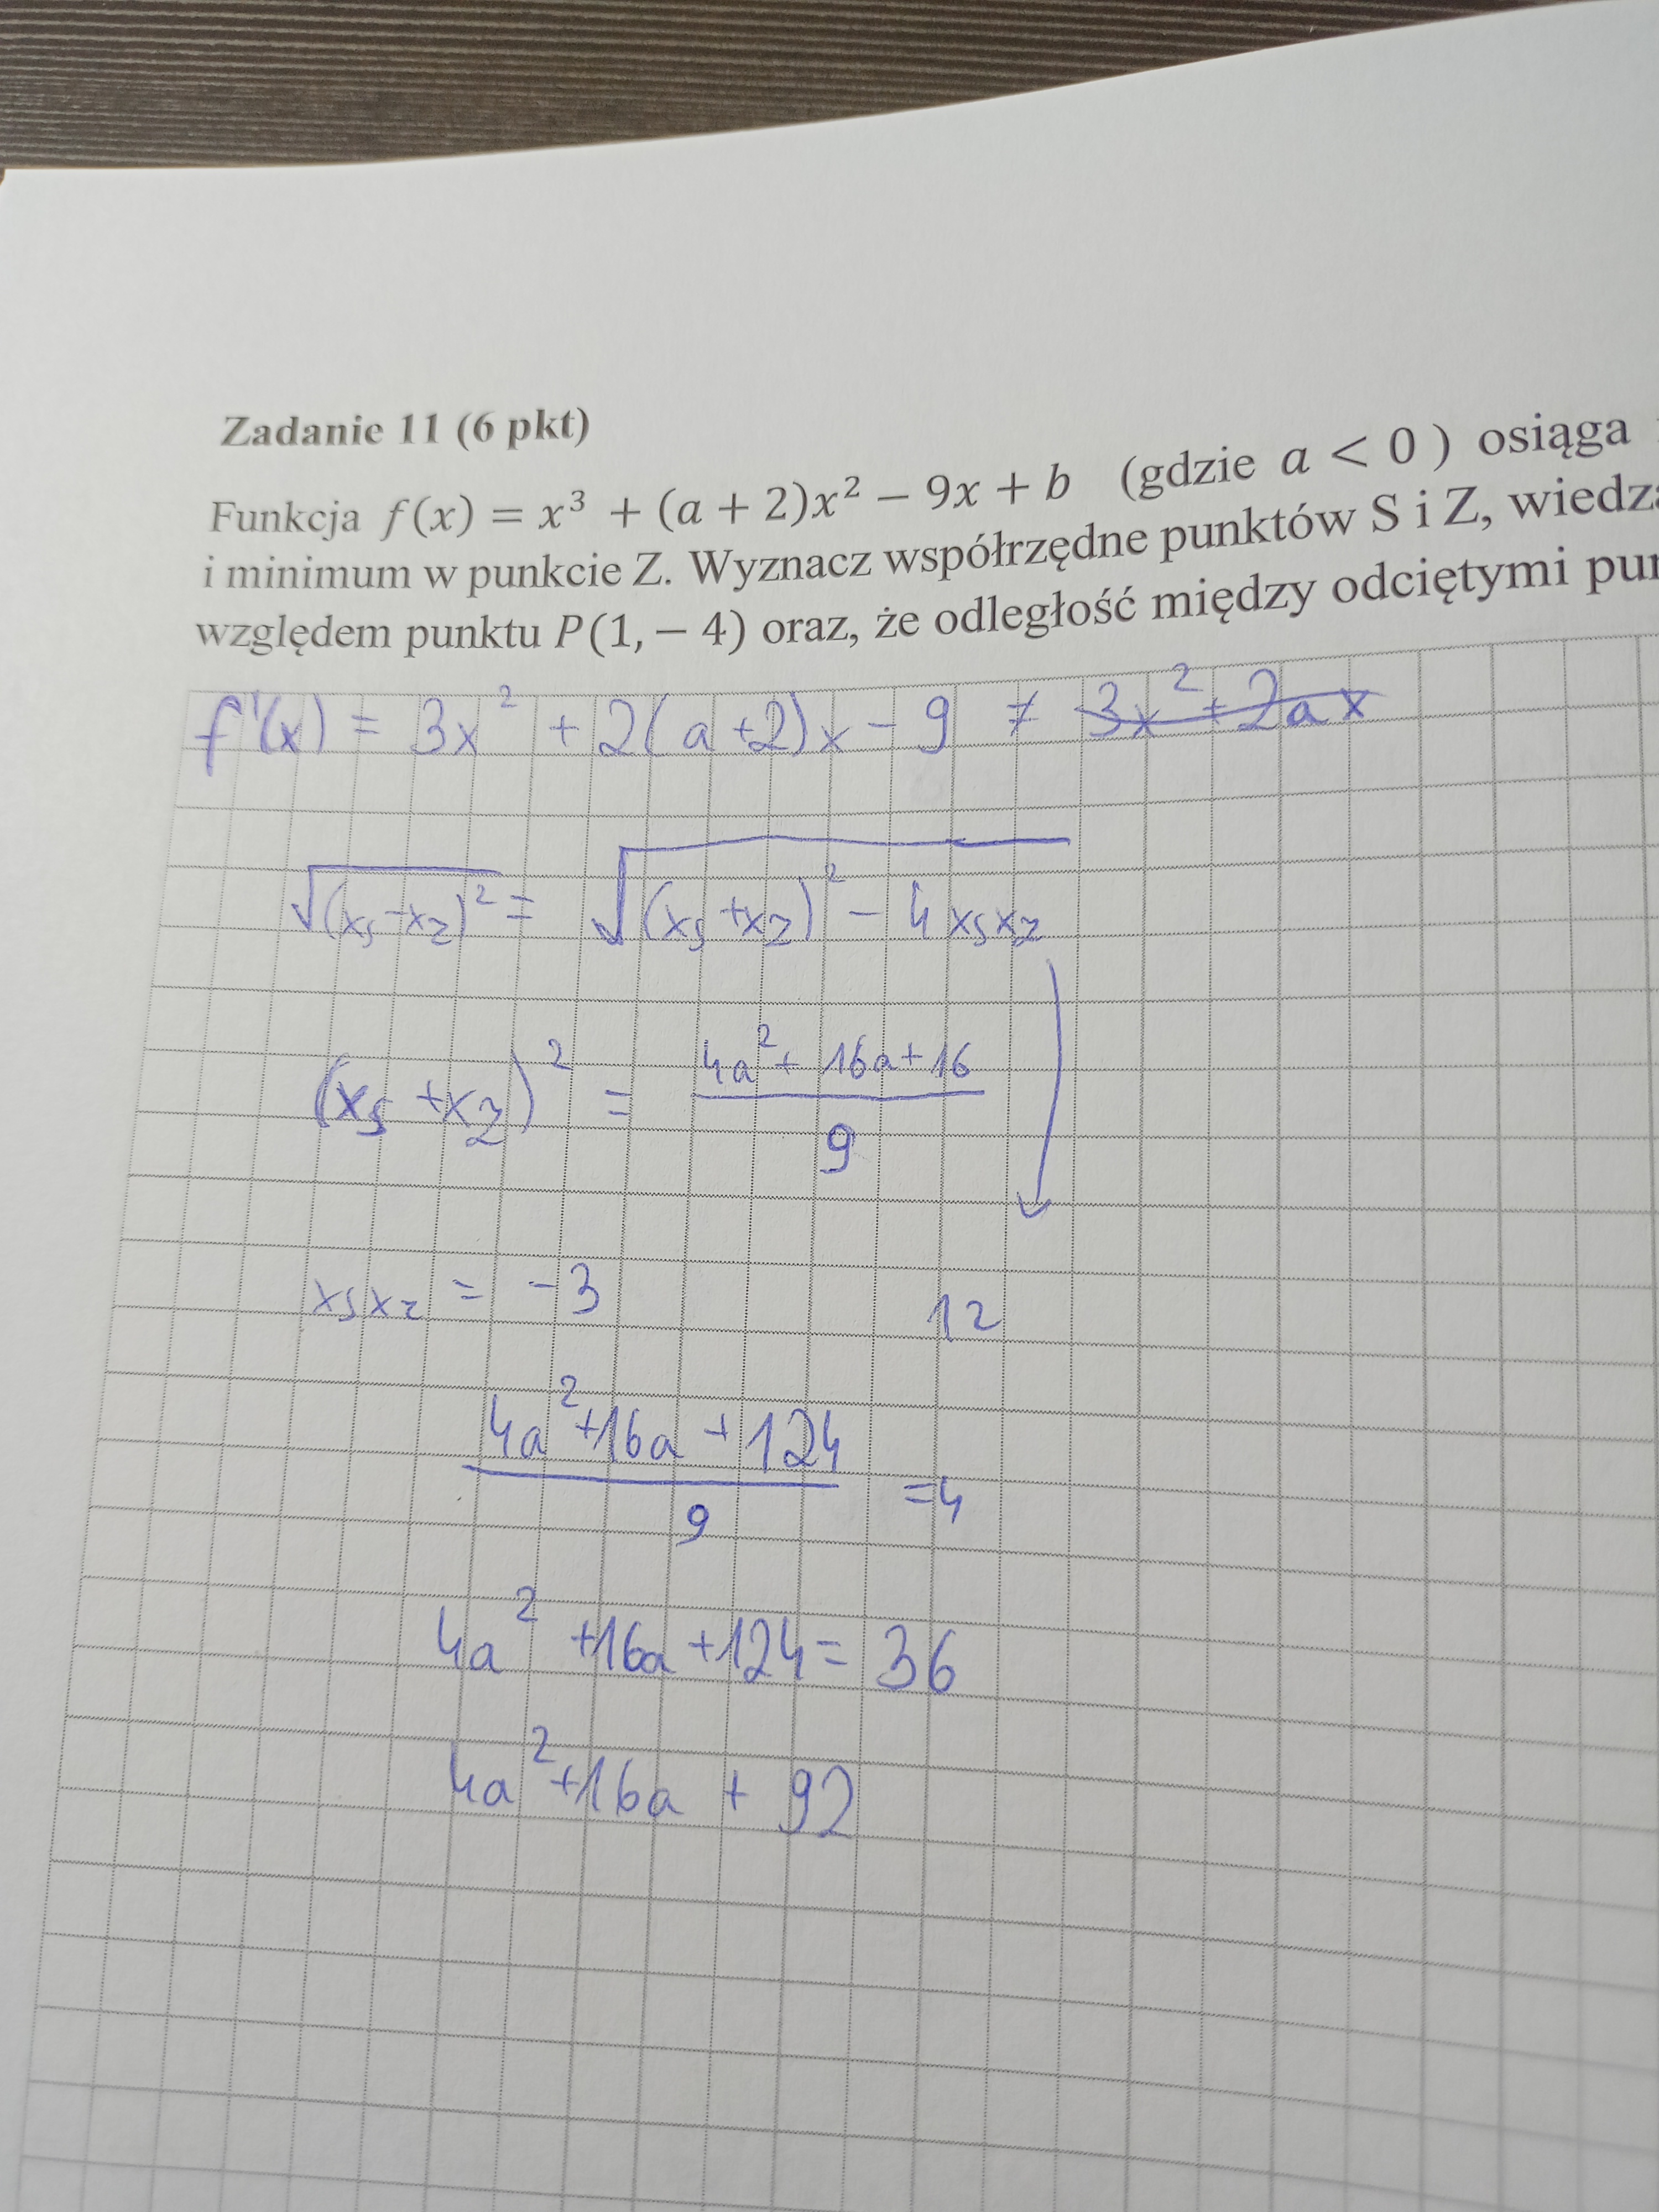 Zadanie 11 (6 pkt)
Funkcja f(x) = x³ + (a + 2)x² − 9x + b (gdzie a < 0 ) osiąga
i minimum w punkcie Z. Wyznacz współrzędne punktów S i Z,
względem punktu P(1, − 4) oraz, że odległość między odciętymi
f'(x) = 3x² + 2(a+2)x − 9 ≠ 3x² + 2ax
√(xs−xz)² = √(xs+xz)² − 4xsxz
(xs+xz)² = 4a² + 16a + 16 / 9
xsxz = −3 12
4a² + 16a + 124 / 9 = 4
4a² + 16a + 124 = 36
4a² + 16a + 92